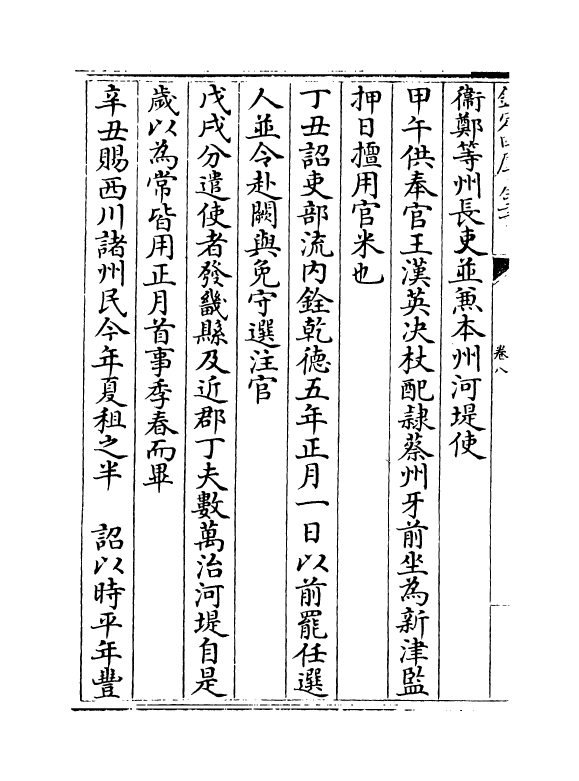 欽定四庫全書
卷八
衞鄭等州長吏並兼本州河堤使
甲午供奉官王漢英決杖配隷蔡州牙前坐為新津監
押日擅用官米也
丁丑詔吏部流内銓乾德五年正月一日以前罷任選
人並令赴闕與免守選注官
戊戌分遣使者發畿縣及近郡丁夫數萬治河堤自是
歲以為常皆用正月首事季春而畢
辛丑賜西川諸州民今年夏租之半 詔以時平年豐